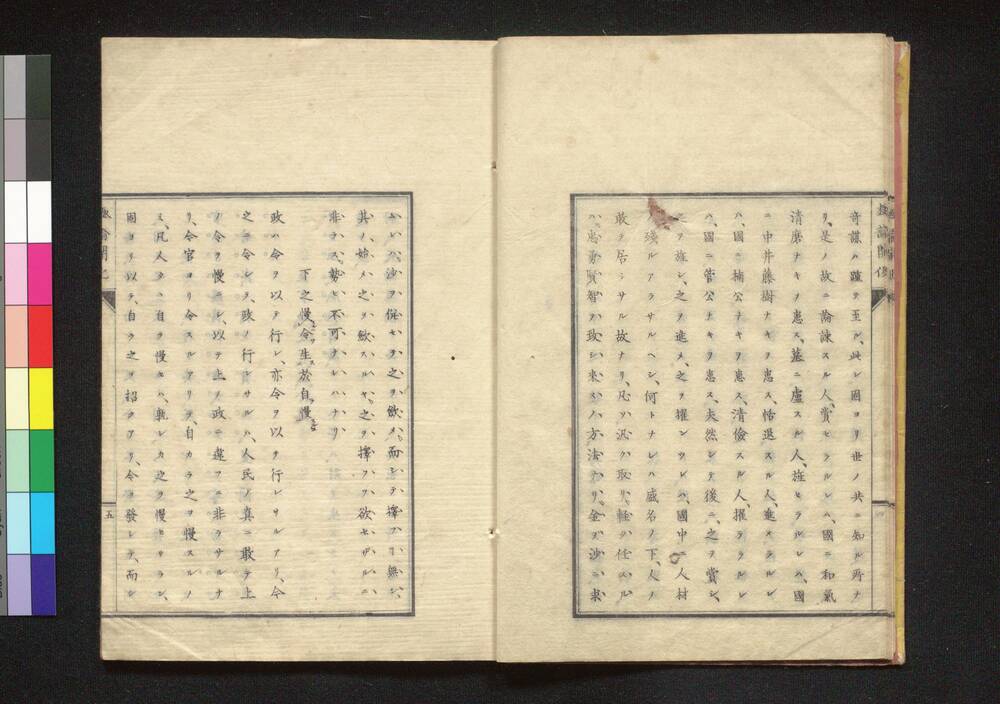 奇謀ハ踵テ至ル、此レ固ヨリ世ノ共ニ知ル所ナ
リ、是ノ故ニ諭諌スル人、賞ヒラルレハ、國ニ和氣
清磨ナキヲ患ス、墓ニ盧スル人、旌セラルレハ、國
ニ中井藤樹ナキヲ患ス、恬退スル人、進メラルレ
ハ、國ニ楠公ナキヲ患ス、清儉スル人、擢ラルレ
ハ、國ニ菅公ナキヲ患ス、夫然レテ後ニ、之ヲ賞シ、
之ヲ旌シ、之ヲ進メ、之ヲ擢ンツレハ、國中ノ人材
ノ殘ルアラサルヘシ、何トナレハ盛名ノ下、人ノ
敢テ居ラサル故ナリ、凡ソ汎ク取リ、輕ク任スル
ハ、忠勇賢智ヲ致シ、來スノ方法ナリ、金ヲ沙ニ求
ムレハ、沙ヲ促セ、之ヲ斂メ、而シテ擇フハ無シ、
其ノ始メ、之ヲ斂スルヤ、之ヲ擇フヲ、欲セザルニ
非ラス、勢ヒ不可ナレハナリ
下之慢令生於自慢
政ハ令ヲ以テ行レ、亦令ヲ以テ行レサルアリ、令
之ニ令シテ、政ノ行レサルハ、人民ノ真ニ敢テ上
ノ令ヲ慢ニシ、以テ上ノ政ニ違フニ非ラサルナ
リ、令官ヨリ令スルアリテ、自カラ之ヲ慢スルノ
ミ、凡人タニ自ラ慢セハ、孰レカ之ヲ慢セサラン、
固ヨリ以テ、自ラ之ヲ招クアリ、令ヲ發シテ、而シ
五